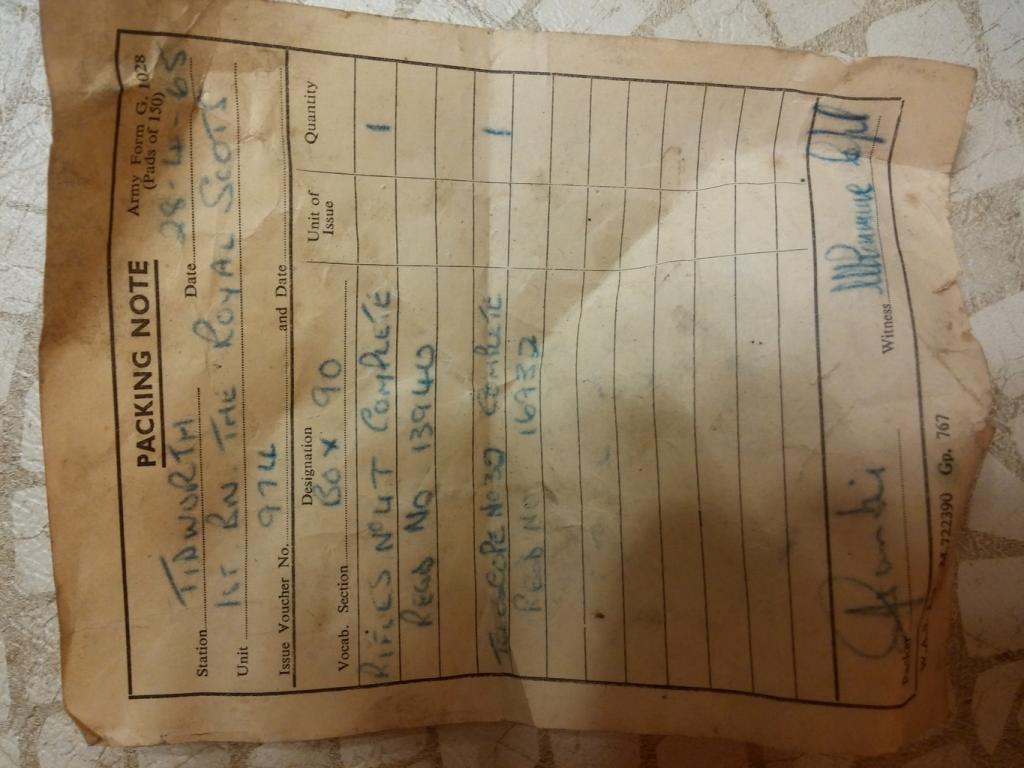 Army Form G. 1028
(Pads of 150)
PACKING NOTE
Station TIDWORTH Date 28-4-65
Unit 1ST BN THE ROYAL SCOTS
Issue Voucher No. 974 and Date
Vocab. Section Designation Unit of Issue Quantity
BOX 90
RIFLES No 4T COMPLETE 1
REGD NO 1394
TELESCOPE No 32 COMPLETE 1
REGD NO 16932
Packer Witness
M.722390 Gp. 767